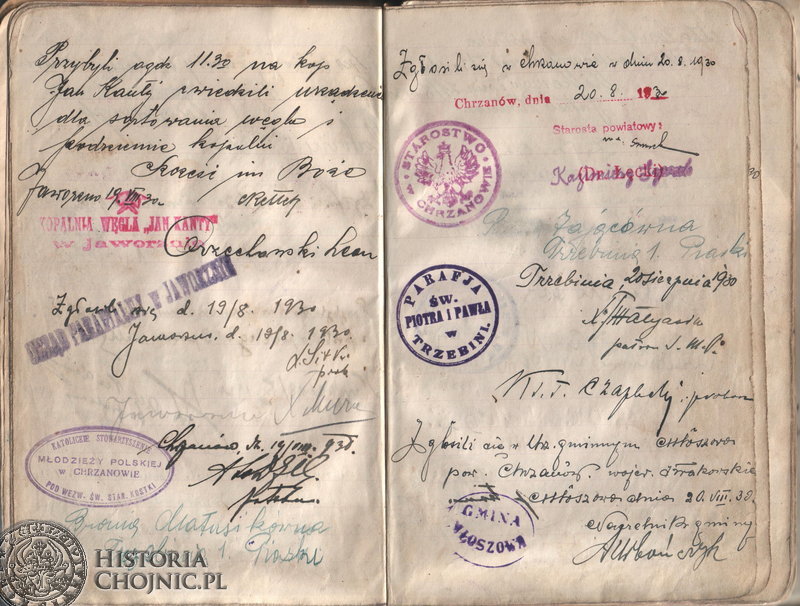 Przybyli o godz 11.30 na kop
Jan Kanty zwiedzili urządzenie
dla sortowania węgla i
podziemie kopalni
Szczęść im Boże
Jaworzno 19.VIII.30.
KOPALNIA WĘGLA „JAN KANTY"
w Jaworznie
Orzechowski Leon
URZĄD PARAFIALNY W JAWORZNIE
Zgłosili się d. 19/8. 1930
Jaworzno. d. 19/8. 1930.
KATOLICKIE STOWARZYSZENIE
MŁODZIEŻY POLSKIEJ
W CHRZANOWIE
POD WEZW. ŚW. STAN. KOSTKI
Chrzanów, 19/VIII. 1930.
Bronia Matusikówna
1. Piaski
HISTORIA
CHOJNIC.PL
Zgłosili się w Chrzanowie w dniu 20.8.1930
Chrzanów, dnia 20.8. 1930
Starosta powiatowy:
(Dr. Łęcki)
STAROSTWO
CHRZANOWIE
Zającówna
Trzebinia 1. Piaski
Trzebinia, 20 sierpnia 1930
PARAFJA
ŚW.
PIOTRA I PAWŁA
W
TRZEBINI.
Zgłosili się w Urz. gminnym Młoszowa
pow. Chrzanów. wojew. Krakowskie
Młoszowa dnia 20.VIII.30.
GMINA
MŁOSZOWA
Naczelnik gminy